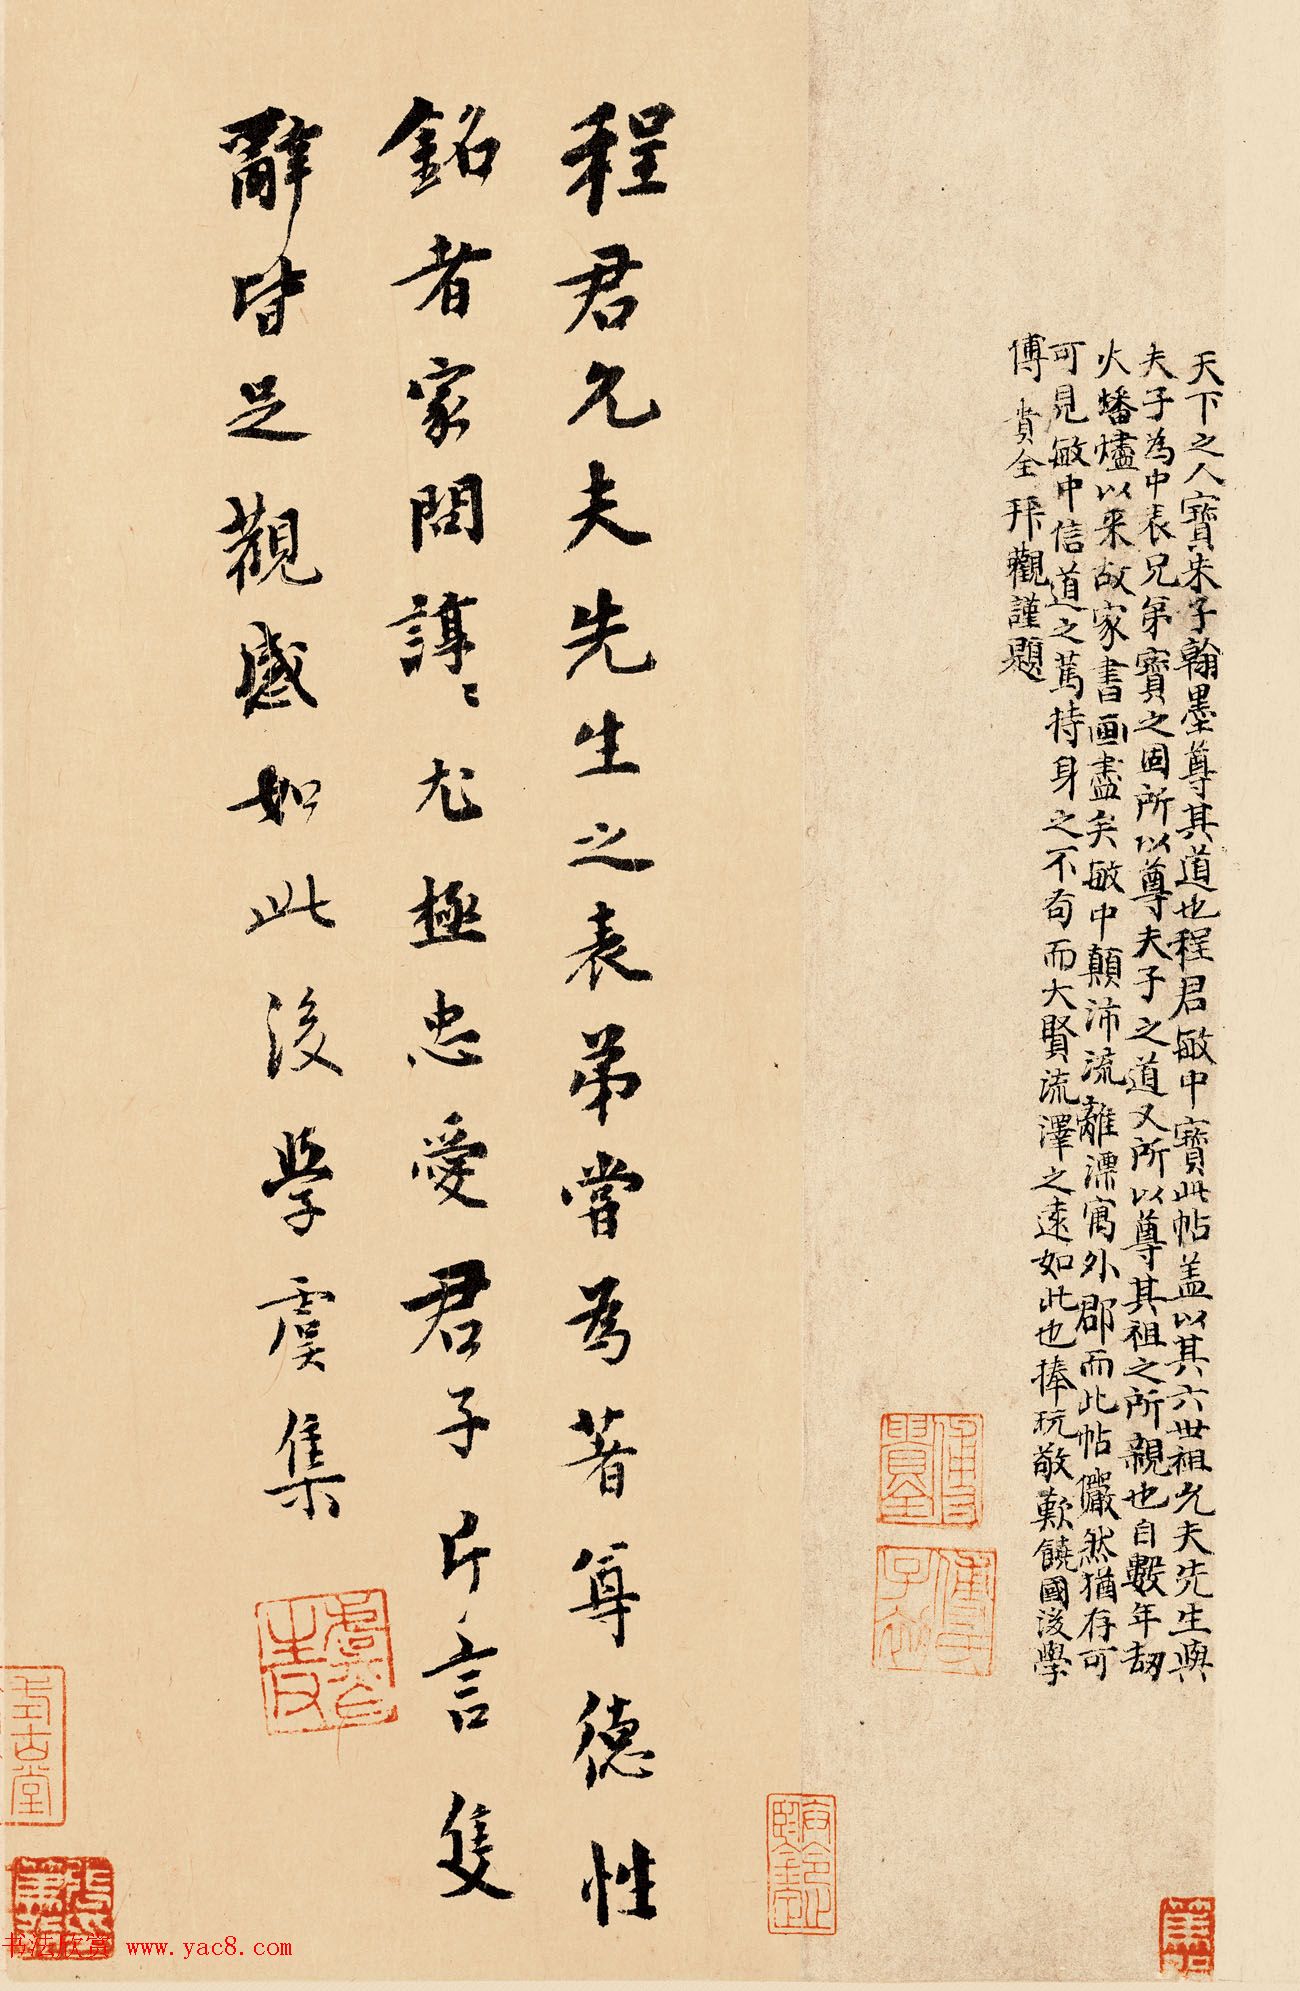 天下之人寶朱子翰墨尊其道也程君敏中寶此帖盖以其六世祖允夫先生與
夫子為中表兄弟寶之固所以尊夫子之道又所以尊其祖之所親也自數年刼
火燔燼以来故家書画盡矣敏中顛沛流離漂寓外郡而此帖儼然猶存可
可見敏中信道之篤持身之不苟而大賢流澤之遠如此也捧玩敬歎饒國後學
傅貴全拜觀謹題
程君允夫先生之表弟嘗為著尊德性
銘者家問諄〻尤極忠愛君子片言隻
辭皆足觀感如此後學虞集
傅貴全
書法欣賞 www.yac8.com